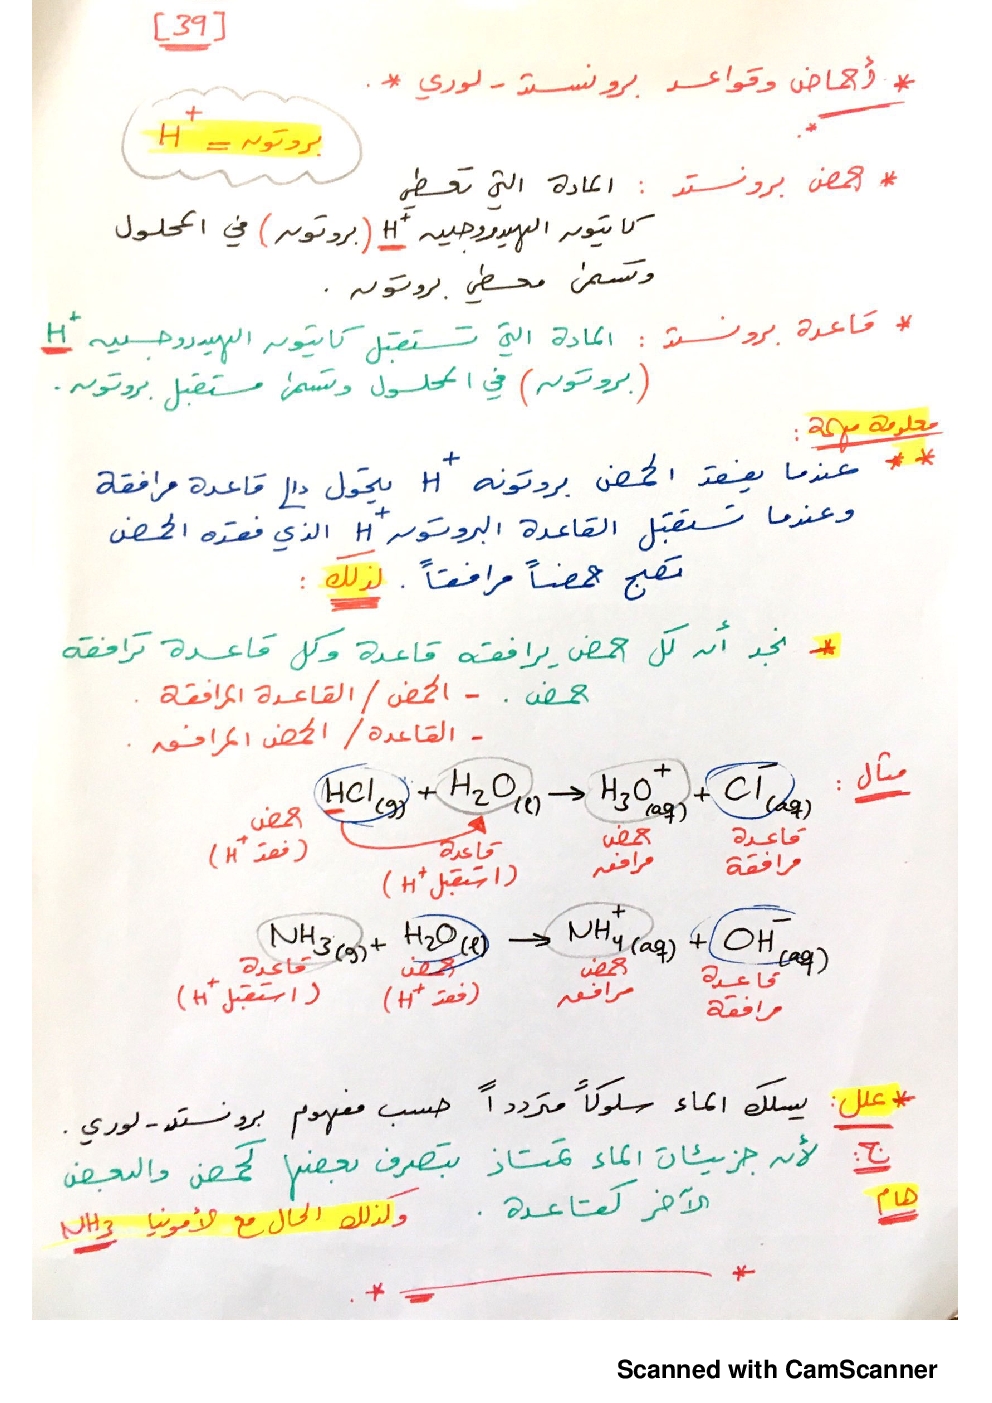 [39]
* أحماض وقواعد برونستد - لوري *.
بروتون = H⁺
* حمض برونستد : المادة التي تعطي
كاتيون الهيدروجين H⁺ (بروتون) في المحلول
وتسمى معطي بروتون .
* قاعدة برونستد : المادة التي تستقبل كاتيون الهيدروجين H⁺
(بروتون) في المحلول وتسمى مستقبل بروتون .
معلومة مهمة :
** عندما يفقد الحمض بروتونه H⁺ يتحول إلى قاعدة مرافقة
وعندما تستقبل القاعدة البروتون H⁺ الذي فقده الحمض
تصبح حمضاً مرافقاً . لذلك :
* نجد أن كل حمض يرافقه قاعدة وكل قاعدة ترافقه
حمض . - الحمض / القاعدة المرافقة .
- القاعدة / الحمض المرافق .
مثال :
HCl(g) + H₂O(l) → H₃O⁺(aq) + Cl⁻(aq)
حمض (فقد H⁺) قاعدة (استقبل H⁺) حمض مرافق قاعدة مرافقة
NH₃(g) + H₂O(l) → NH₄⁺(aq) + OH⁻(aq)
قاعدة (استقبل H⁺) حمض (فقد H⁺) حمض مرافق قاعدة مرافقة
* علل : يسلك الماء سلوكاً مترددا حسب مفهوم برونستد - لوري .
ج : لأن جزيئات الماء تمتاز بتصرف بعضها كحمض والبعض
الآخر كقاعدة .
هام
وكذلك الحال مع الأمونيا NH₃
Scanned with CamScanner